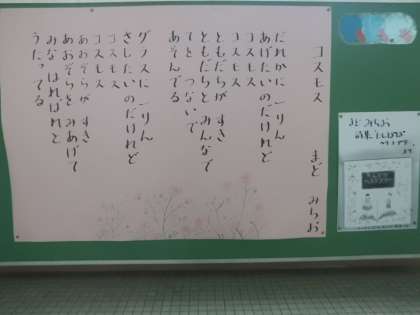 コスモス
まど みちお
だれかに 一りん
あげたいのだけれど
コスモス
コスモス
ともだちが すき
ともだちと みんなで
てと つないで
あそんでる
グラスに 一りん
さしたいのだけれど
コスモス
コスモス
あおぞらが すき
あおぞらと みあげて
みな はればれと
うたってる
まど みちお